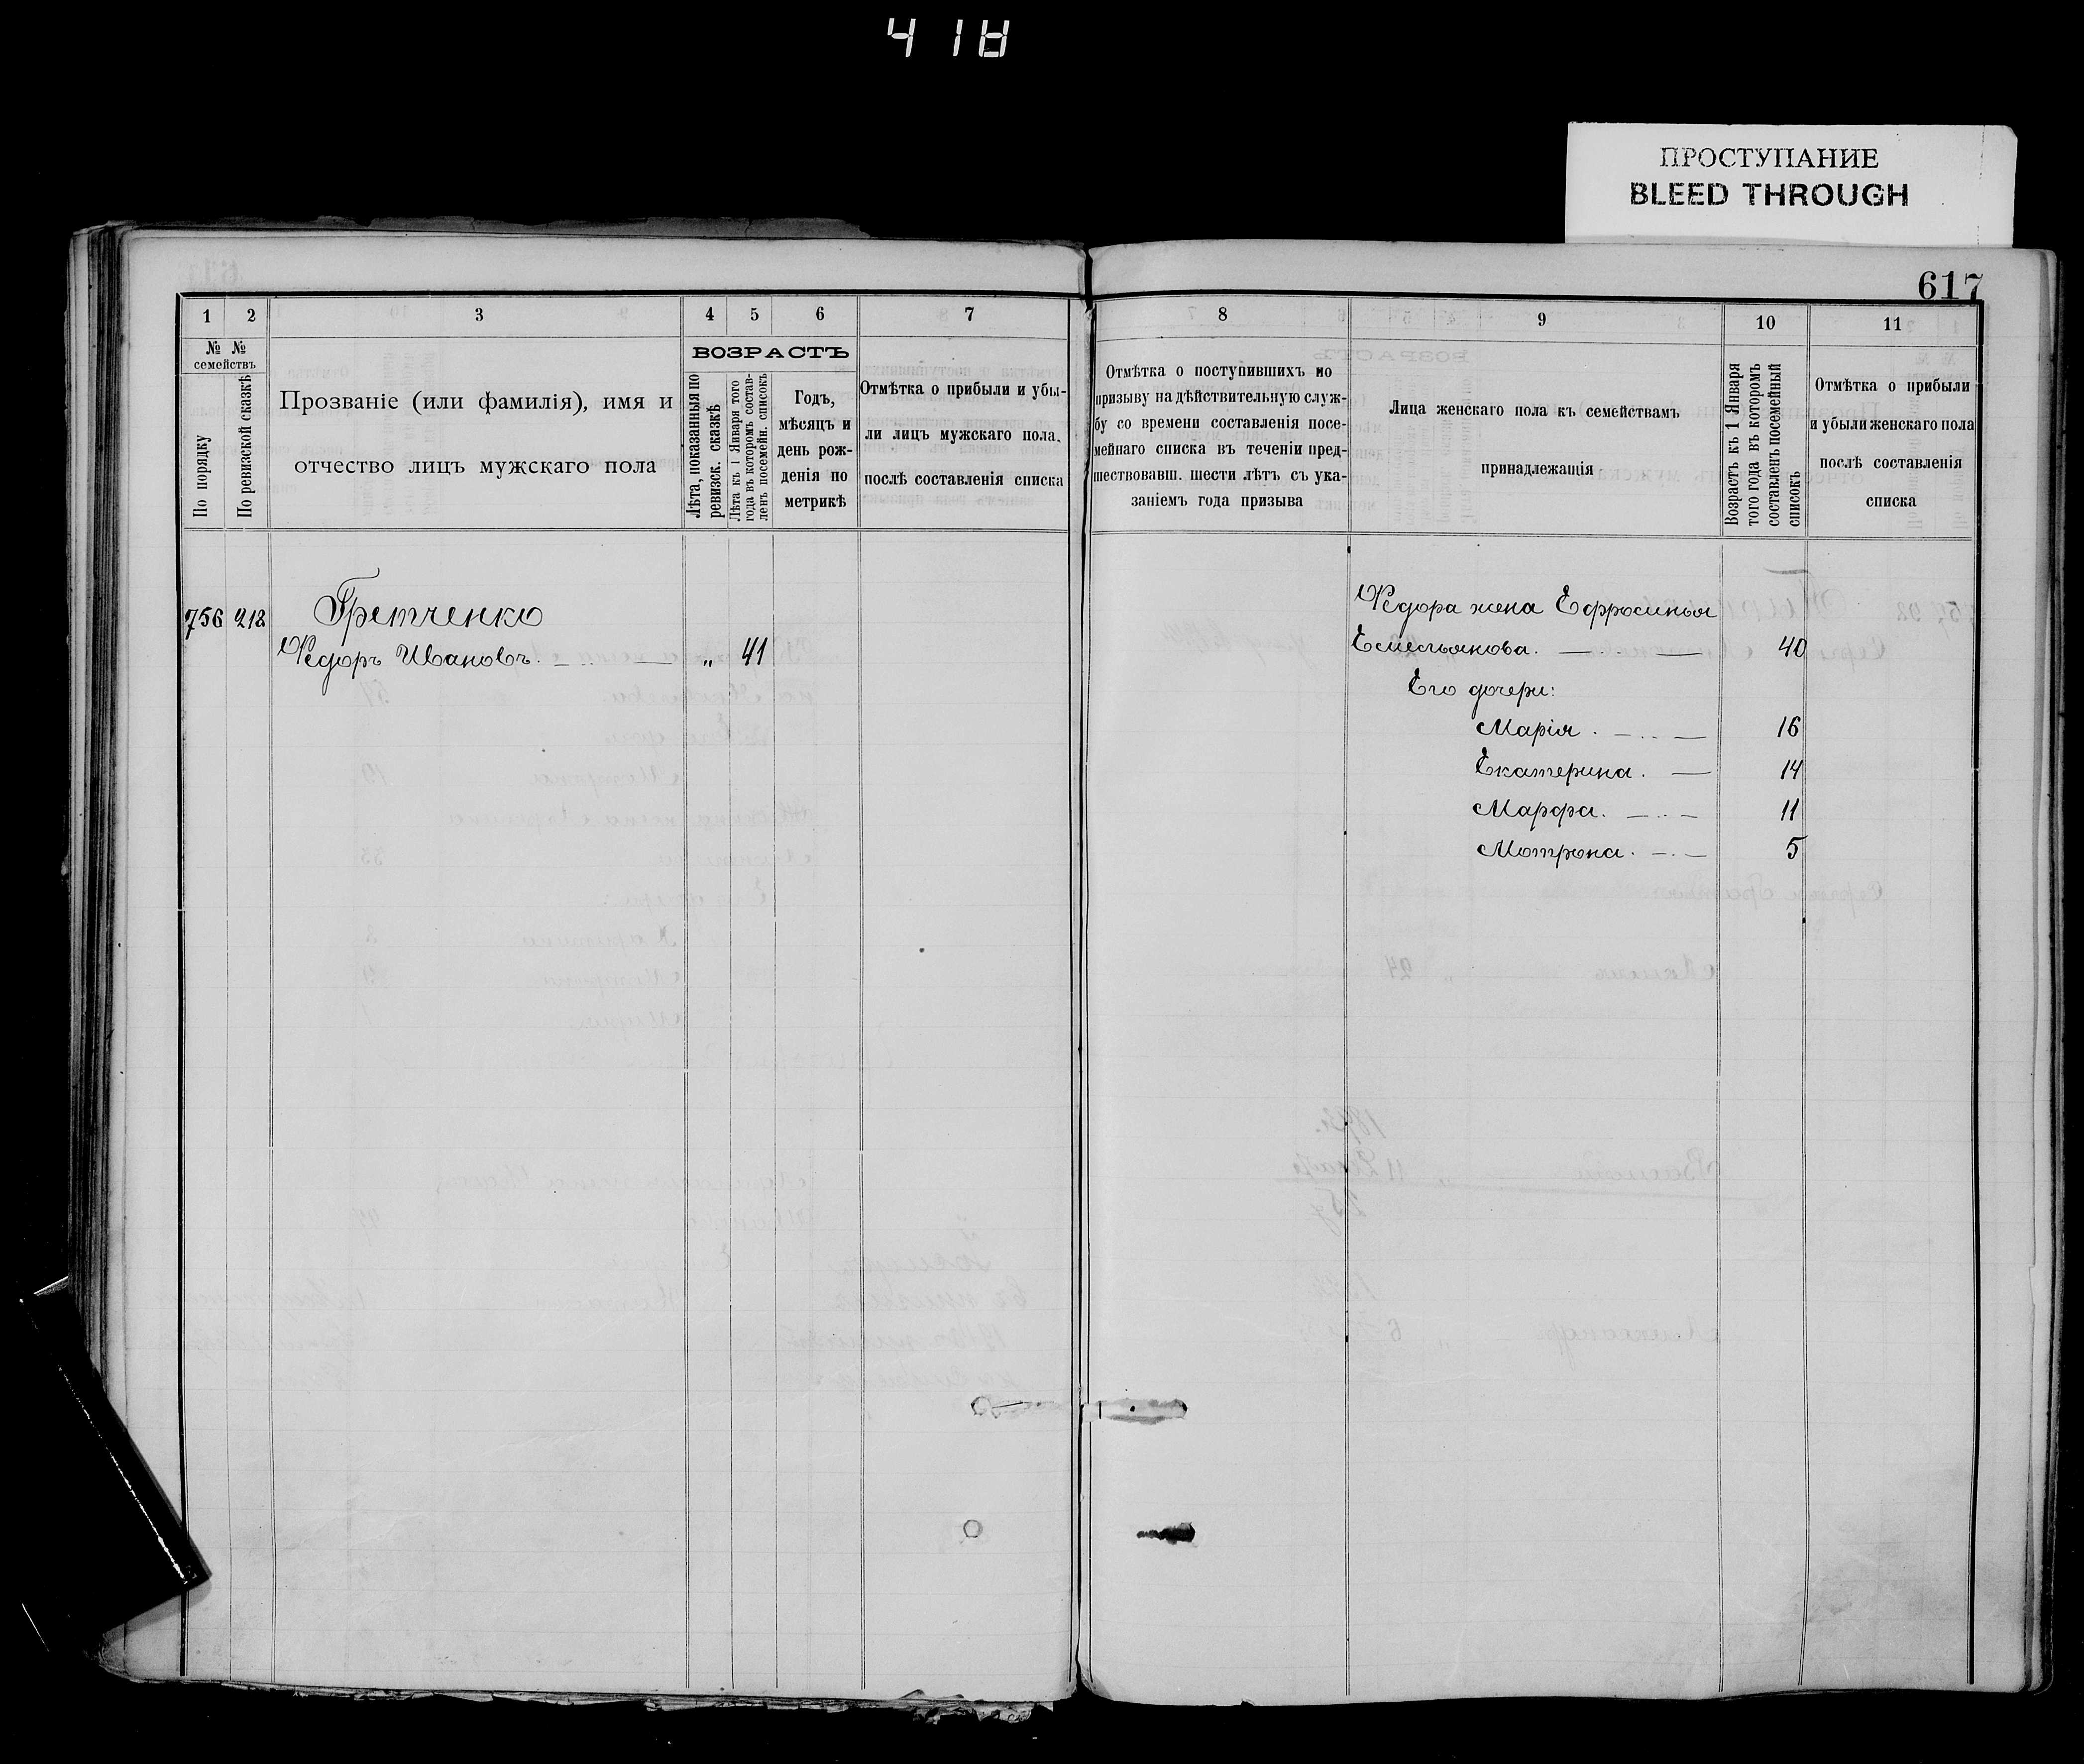 418
ПРОСТУПАНИЕ
BLEED THROUGH
617
1 2 3 4 5 6 7
№ № семействъ
По порядку
По ревизской сказкѣ
Прозваніе (или фамилія), имя и
отчество лицъ мужскаго пола
ВОЗРАСТЪ
Лѣта, показанныя по
ревизск. сказкѣ
Лѣта къ 1 Января того
года въ которомъ состав-
ленъ посемейн. списокъ
Годъ,
мѣсяцъ и
день рож-
денія по
метрикѣ
Отмѣтка о прибыли и убы-
ли лицъ мужскаго пола,
послѣ составленія списка
756 212 Гретченко
Ѳедоръ Ивановъ. — „ 41
8 9 10 11
Отмѣтка о поступившихъ по
призыву на дѣйствительную служ-
бу со времени составленія посе-
мейнаго списка въ теченіи пред-
шествовавш. шести лѣтъ съ ука-
заніемъ года призыва
Лица женскаго пола къ семействамъ
принадлежащія
Возрастъ къ 1 Января
того года въ которомъ
составленъ посемейный
списокъ
Отмѣтка о прибыли
и убыли женскаго пола
послѣ составленія
списка
Ѳедора жена Ефросинья
Емельянова. — 40
Его дочери:
Марія. — 16
Екатерина. — 14
Марфа. — 11
Мотрона. — 5